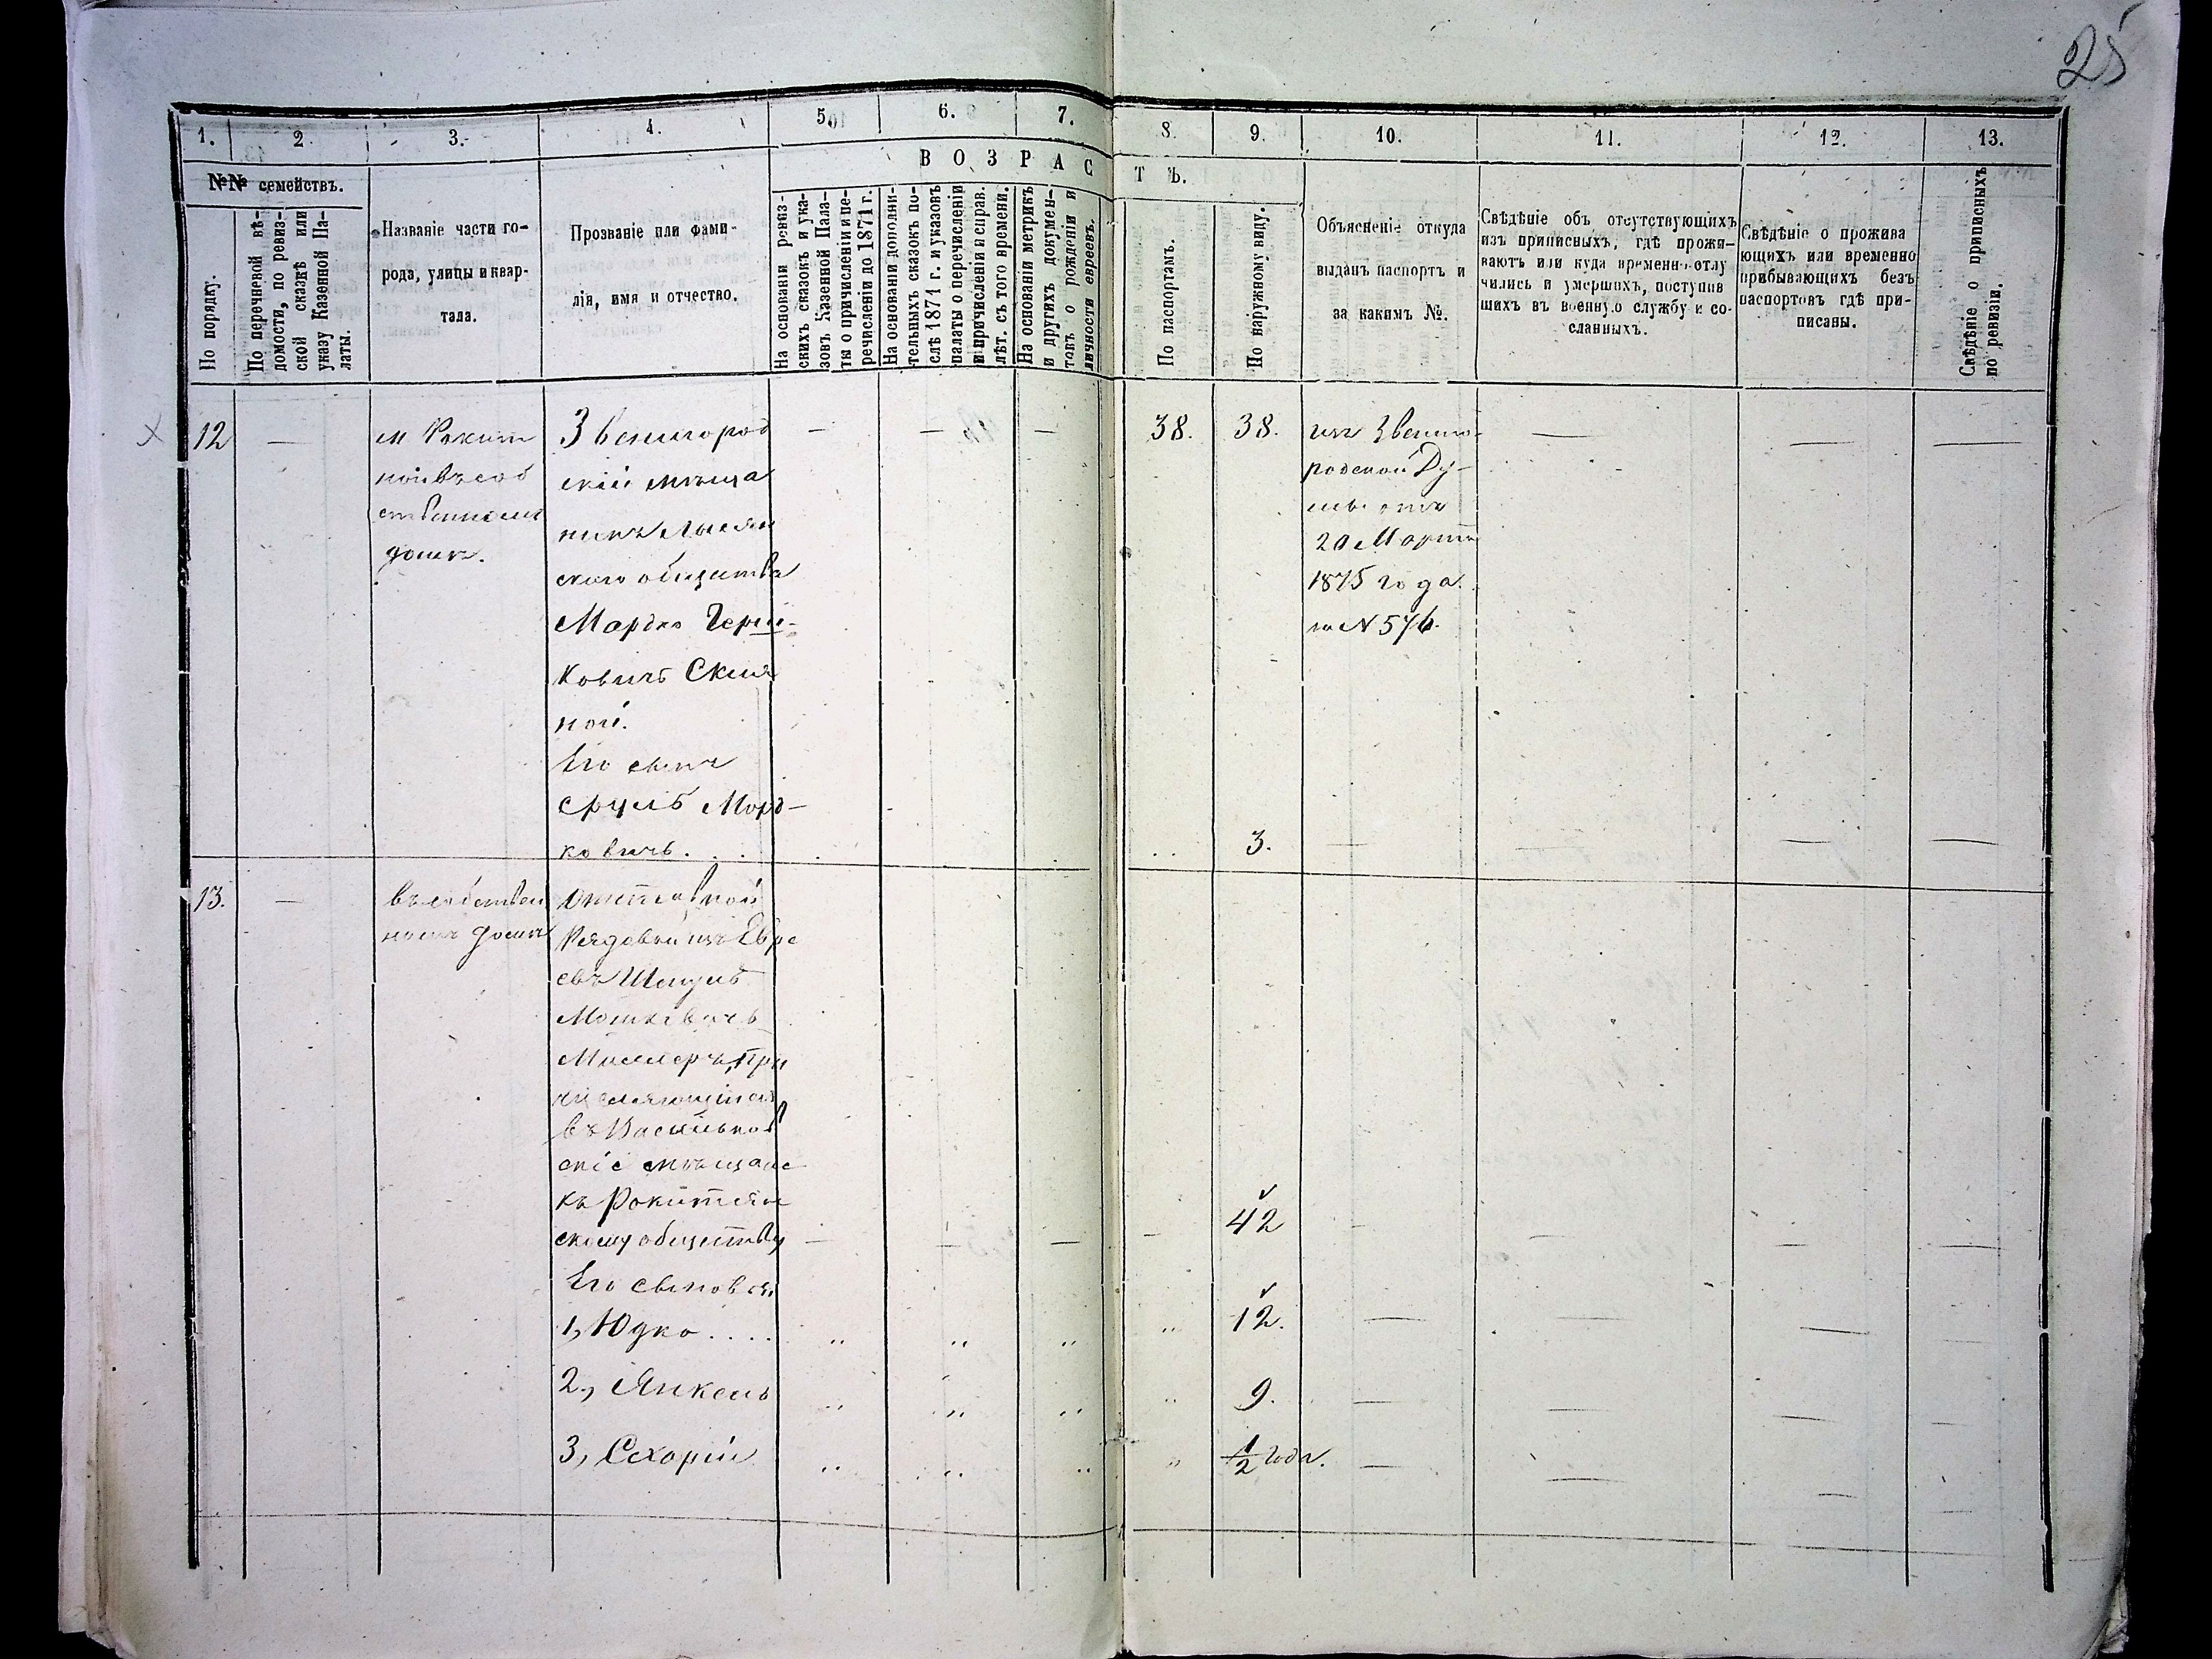 25
1. 2 3. 4. 5. 6. 7. 8. 9. 10. 11. 12. 13.
ВОЗРАСТЪ.
№№ семействъ.
По порядку.
По перечневой вѣ-
домости, по ревиз-
ской сказкѣ или
указу Казенной Па-
латы.
Названіе части го-
рода, улицы и квар-
тала.
Прозваніе или фами-
лія, имя и отчество.
На основаніи ревиз-
скихъ сказокъ и ука-
зовъ Казенной Пала-
ты о причисленіи и пе-
речисленіи до 1871 г.
На основаніи дополни-
тельныхъ сказокъ по-
слѣ 1871 г. и указовъ
палаты о перечисленіи
и причисленіи и справ.
лѣт. съ того времени.
На основаніи метрикъ
и другихъ докумен-
товъ о рожденіи и
личности евреевъ.
По паспортамъ.
По наружному виду.
Объясненіе откуда
выданъ паспортъ и
за какимъ №.
Свѣдѣніе объ отсутствующихъ
изъ приписныхъ, гдѣ прожи-
ваютъ или куда временно отлу
чились и умершихъ, поступив
шихъ въ военную службу и со-
сланныхъ.
Свѣдѣніе о прожива
ющихъ или временно
прибывающихъ безъ
паспортовъ гдѣ при-
писаны.
Свѣдѣніе о приписныхъ
по ревизіи.
12 —
м Ракит
ной въ соб
ственномъ
домѣ.
Звенигород
скій мѣща
нинъ Лысян
скаго общества
Мордко Герш-
ковичъ
ной.
Его сынъ
Сруль Морд-
ковичъ. . .
— — — 38. 38.
изъ Звениго-
родской Ду-
мы отъ
20 Марта
1875 года.
за N 576.
— — —
. . 3. — — — —
13. —
въ собствен
номъ домѣ
Отставной
Рядовой изъ Евре
евъ
Мошковичъ
Миллеръ, при
числяющійся
въ Васильков
скіе мѣщане
къ Рокитян
скому обществу
— — — — 42 — — — —
Его сыновья
1, Юдко . . . . " " " " 12. — — — —
2., Янкель " " " " 9. — — — —
3, Схорія " " " " 1/2 года. — — — —